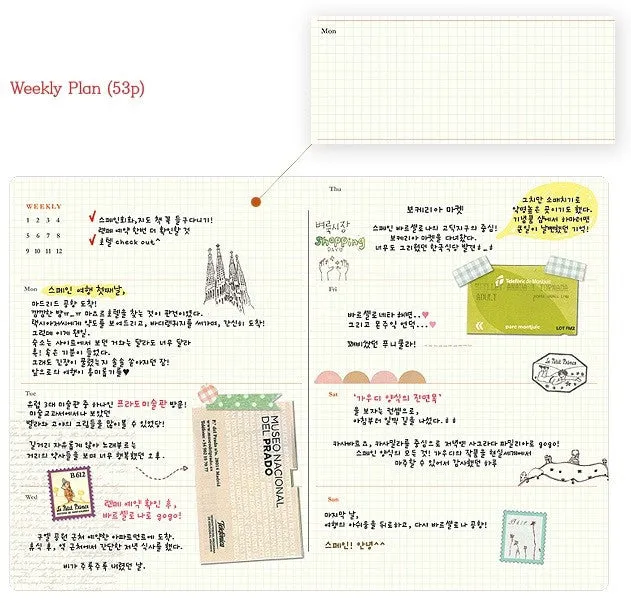 Mon
Weekly Plan (53p)
WEEKLY
1 2 3 4
5 6 7 8
9 10 11 12
스페인회화, 지도 책 꼭 들구다니기!
랜페 예약 한번 더 확인할 것
호텔 check out^
Mon
스페인 여행 첫째날,
마드리드 공항 도착!
깜깜한 밤ㅠ_ㅠ 마요르호텔을 찾는 것이 관건이었다.
택시아저씨에게 약도를 보여드리고, 바디랭귀지를 써가며, 간신히 도착!
그런데 이게 웬일.
숙소는 사이트에서 보던 거와는 달라도 너무 달라
흑! 속은 기분이 들었다.
그래도 긴장이 풀렸는지 솔솔 쏟아지던 잠!
앞으로의 여행이 흥미롭기를♥
Tue
유럽 3대 미술관 중 하나인 프라도미술관 방문!
미술교과서에서나 보았던
벨라와 고야의 그림들을 많이볼 수 있었당!
길거리 자유롭게 앉아 노래부르는
거리의 악사들을 보며 너무 행복했던 오후.
MUSEO NACIONAL
DEL PRADO
Telefónica
Wed
B 612
Le Petit Prince
랜페 예약 확인 후,
바르셀로나로 gogo!
구엘 공원 근처 예약한 아파트먼트에 도착.
휴식 후, 역 근처에서 간단한 저녁 식사를 했다.
비가 주룩주룩 내렸던 날.
Thu
보케리아 마켓
스페인 바르셀로나의 고딕지구의 중심!
보케리아 마켓을 다녀왔다.
너무도 그리웠던 한국식당 발견ㅎ_ㅎ
그치만 소매치기로
악명높은 곳이기도 했다.
기념품 샵에서 하마터면
큰일이 날뻔했던 기억!
벼룩시장
Shopping
Fri
바르셀로네타 해변..♥
그리고 몬주익 언덕...♥
꽤비쌌던 푸니쿨라!
Telefèric de Montjuïc
ADULT
parc montjuïc
Le Petit Prince
Sat
'가우디 양식의 진면목'
을 보자는 컨셉으로,
아침부터 일찍 길을 나섰다.ㅎㅎ
카사바트요, 카사밀라를 중심으로 저녁엔 사그라다 파밀리아로 gogo!
스페인 양식의 모든 것! 가우디의 작품을 현실세계에서
마주할 수 있어서 감사했던 하루
Sun
마지막 날,
여행의 아쉬움을 뒤로하고, 다시 바르셀로나 공항!
스페인! 안녕^^